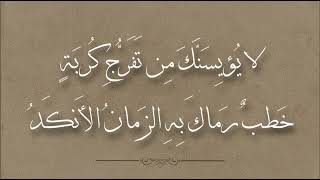 لا يُؤيِسَنَّكَ مِن تَفَرُّجِ كُربَةٍ
خَطبٌ رَماكَ بِهِ الزَمانُ الأَنكَدُ